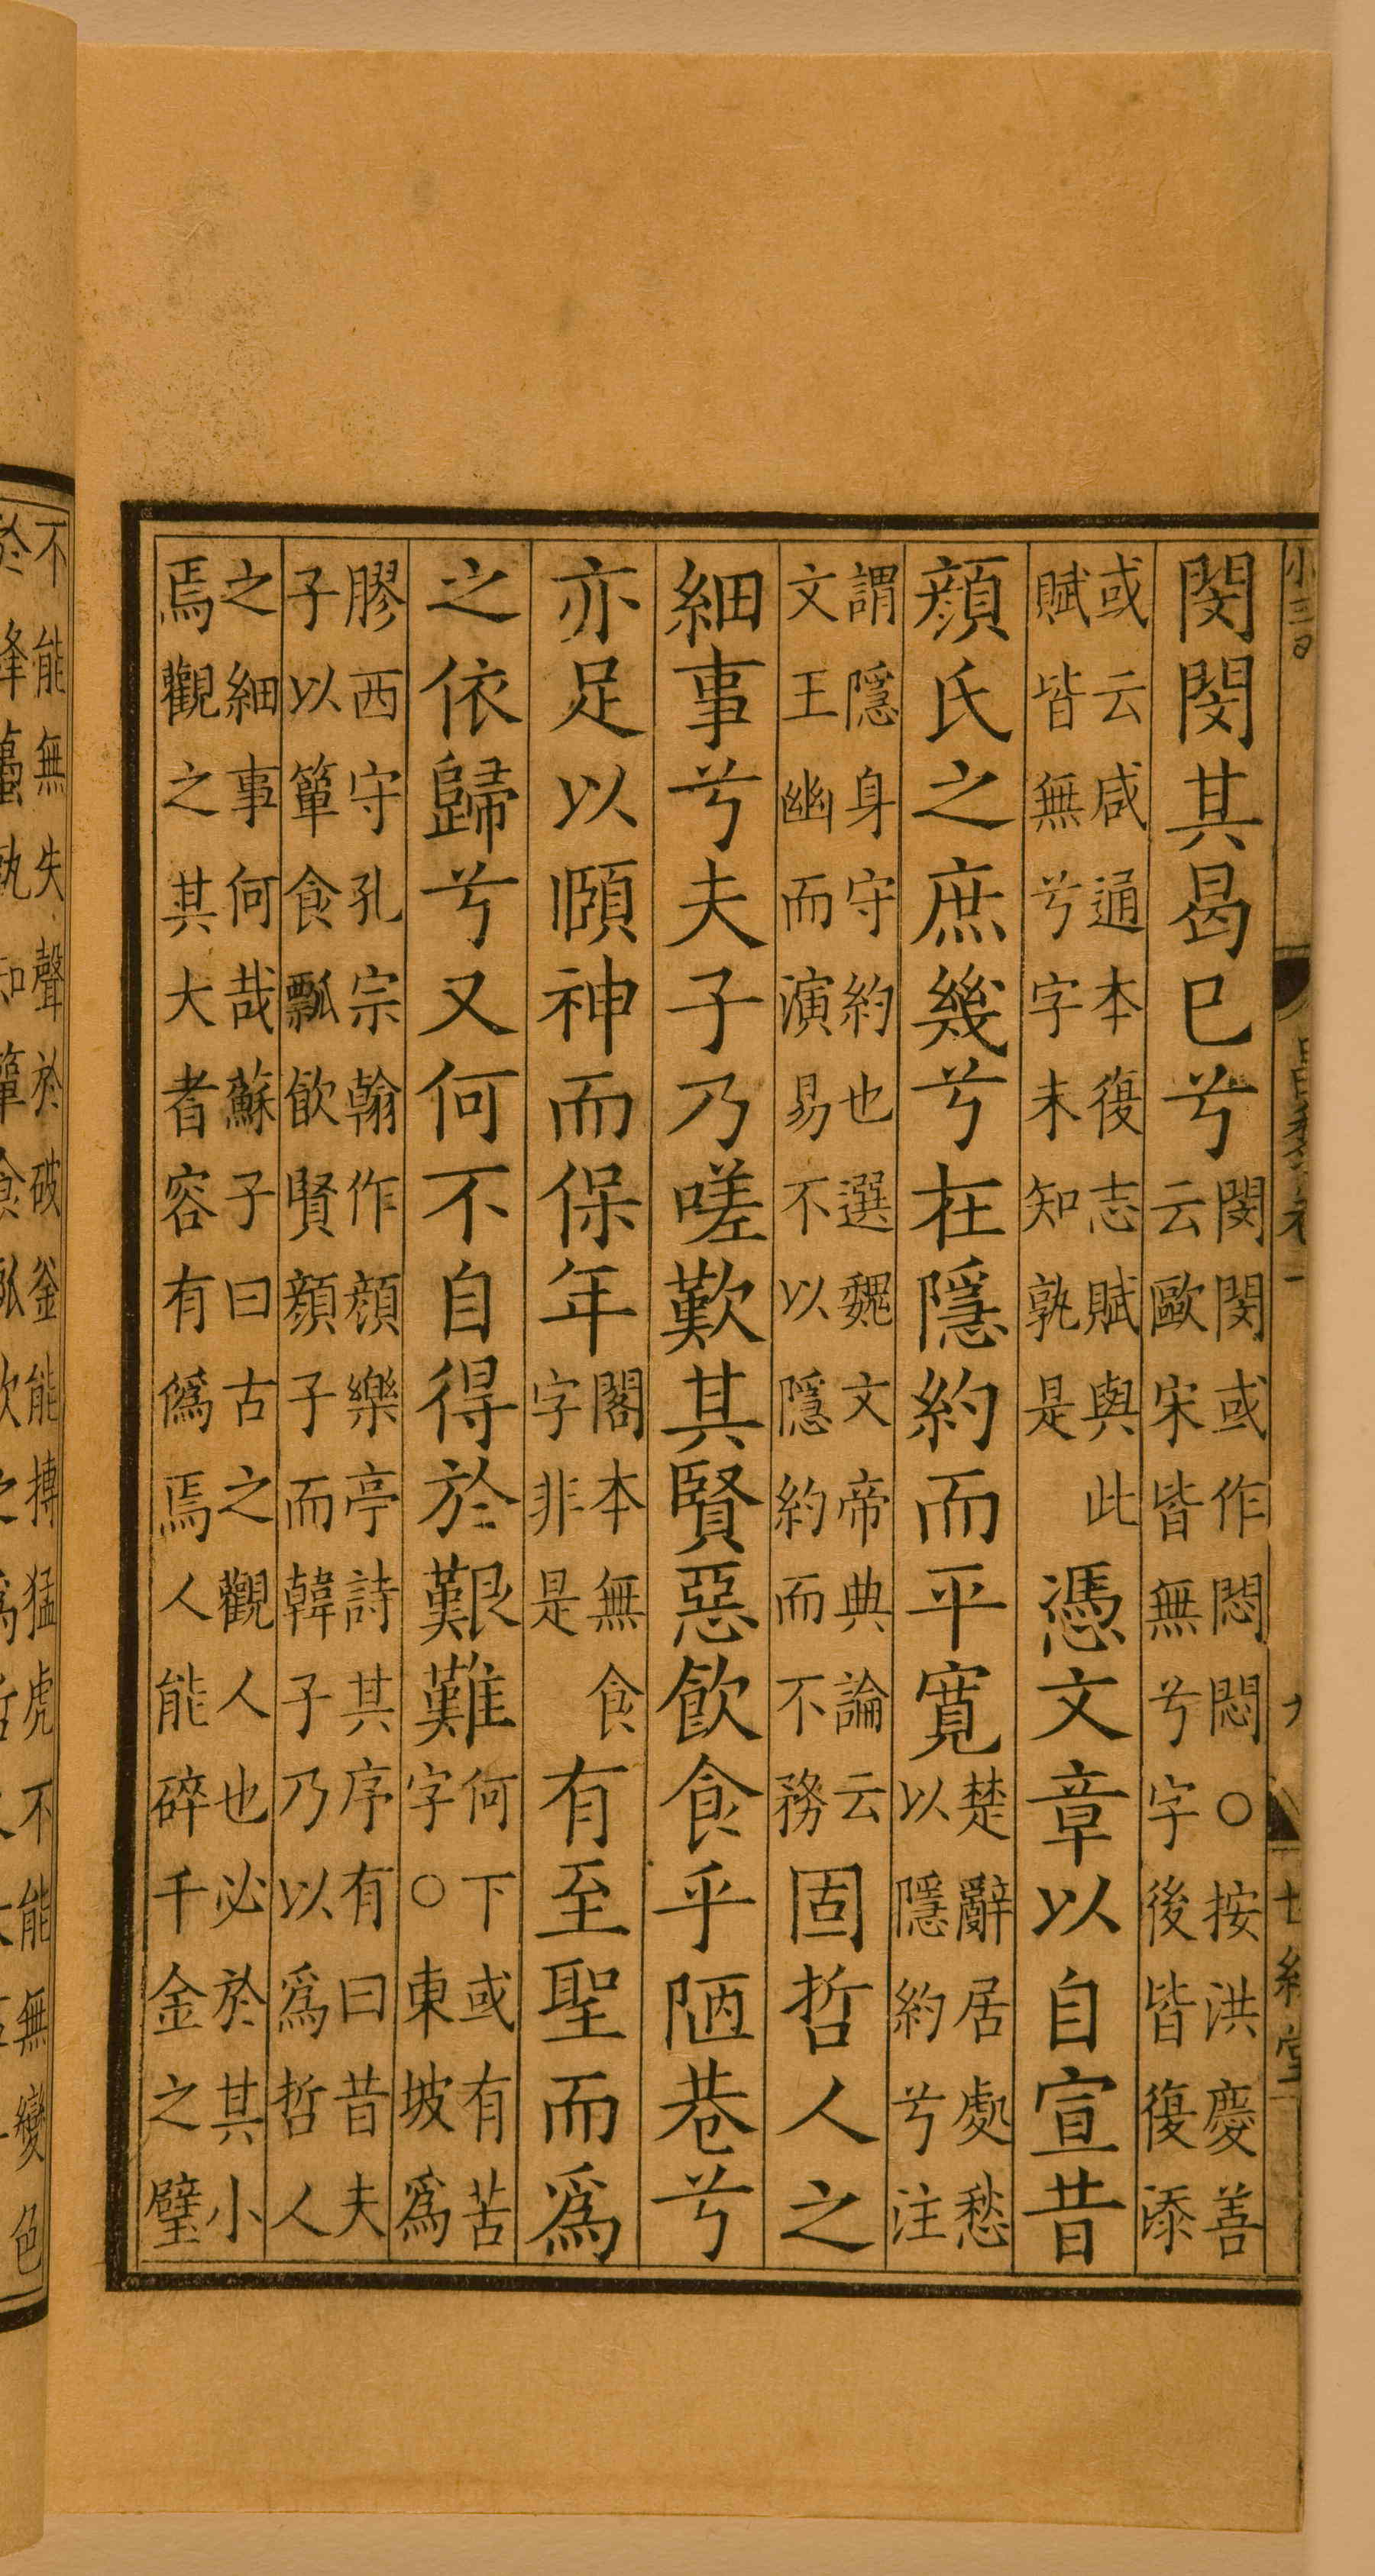 小三
閔閔其曷已兮閔閔或作悶悶○按洪慶善云歐宋皆無兮字後皆復添
或云咸通本復志賦與此賦皆無兮字未知孰是憑文章以自宣昔
顏氏之庶幾兮在隱約而平寬楚辭居處愁以隱約兮注
謂隱身守約也選魏文帝典論云文王幽而演易不以隱約而不務固哲人之
細事兮夫子乃嗟歎其賢惡飲食乎陋巷兮
亦足以頤神而保年閣本無食字非是有至聖而爲
之依歸兮又何不自得於艱難何下或有苦字○東坡爲
膠西守孔宗翰作顏樂亭詩其序有曰昔夫子以簞食瓢飲賢顏子而韓子乃以爲哲人
之細事何哉蘇子曰古之觀人也必於其小焉觀之其大者容有僞焉人能碎千金之璧
不能無失聲於破釜能搏猛虎不能無變色